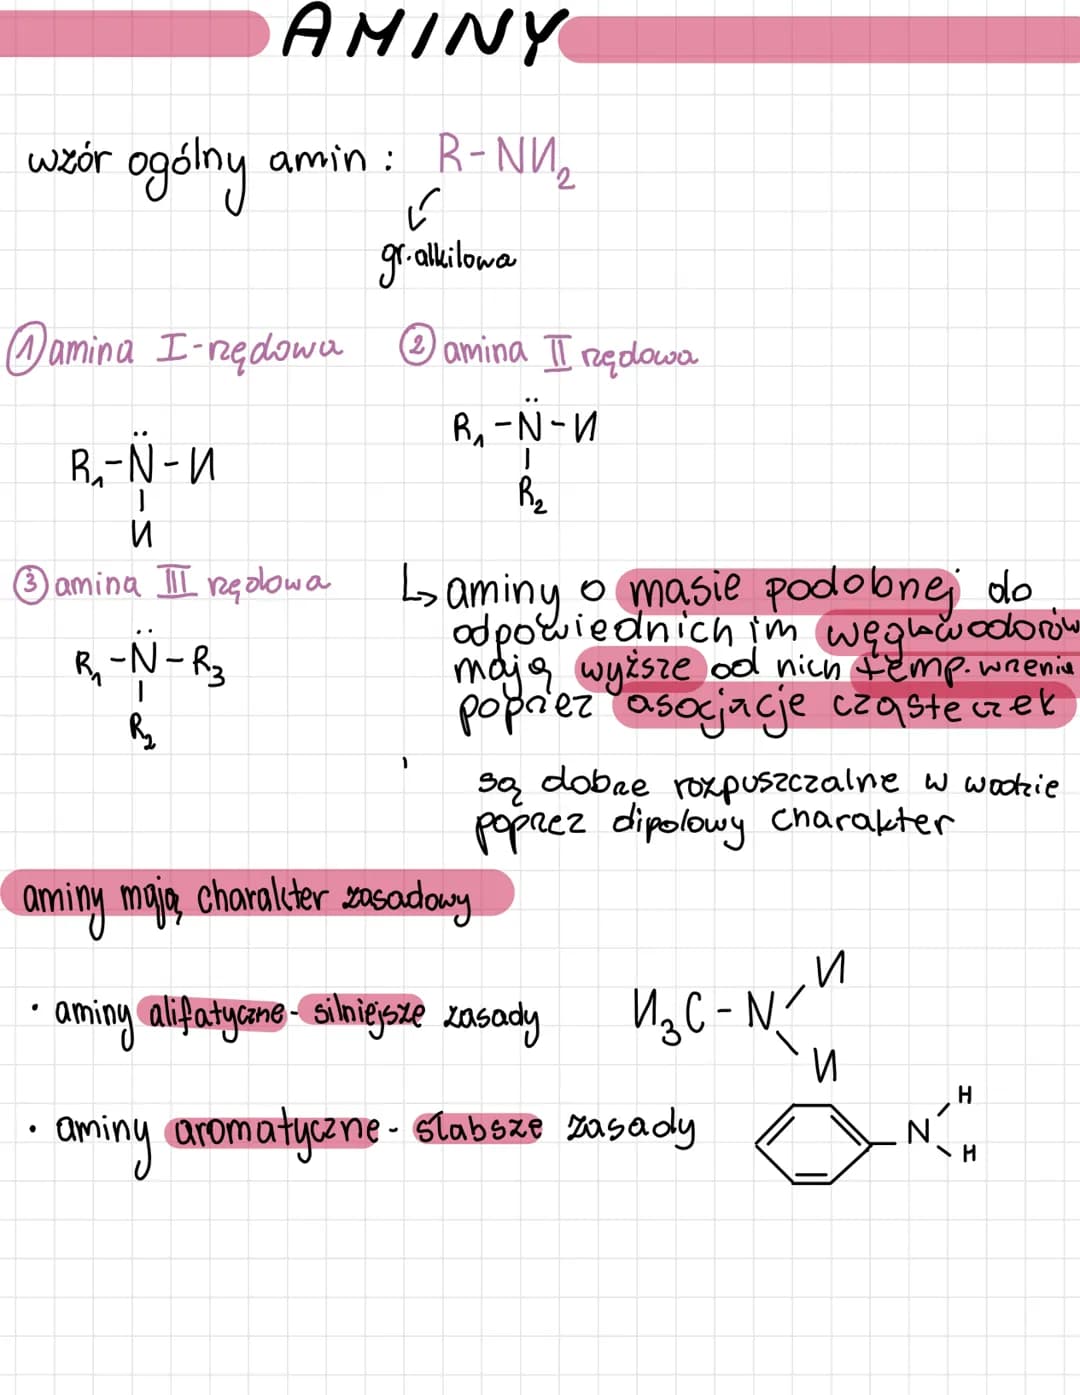 AMINY
wzór ogólny amin: R-NH₂
gr. alkilowa
① amina I-rzędowa
② amina II rzędowa
R₁-N̈-H
|
H
R₁-N̈-H
|
R₂
③ amina III rzędowa
R₁-N̈-R₃
|
R₂
↳ aminy o masie podobnej do
odpowiednich im węglowodorów
mają wyższe od nich temp. wrzenia
poprzez asocjacje cząsteczek
są dobrze rozpuszczalne w wodzie
poprzez dipolowy charakter
aminy mają charakter zasadowy
• aminy alifatyczne - silniejsze zasady
H₃C-N
H
H
• aminy aromatyczne - słabsze zasady
N
H
H